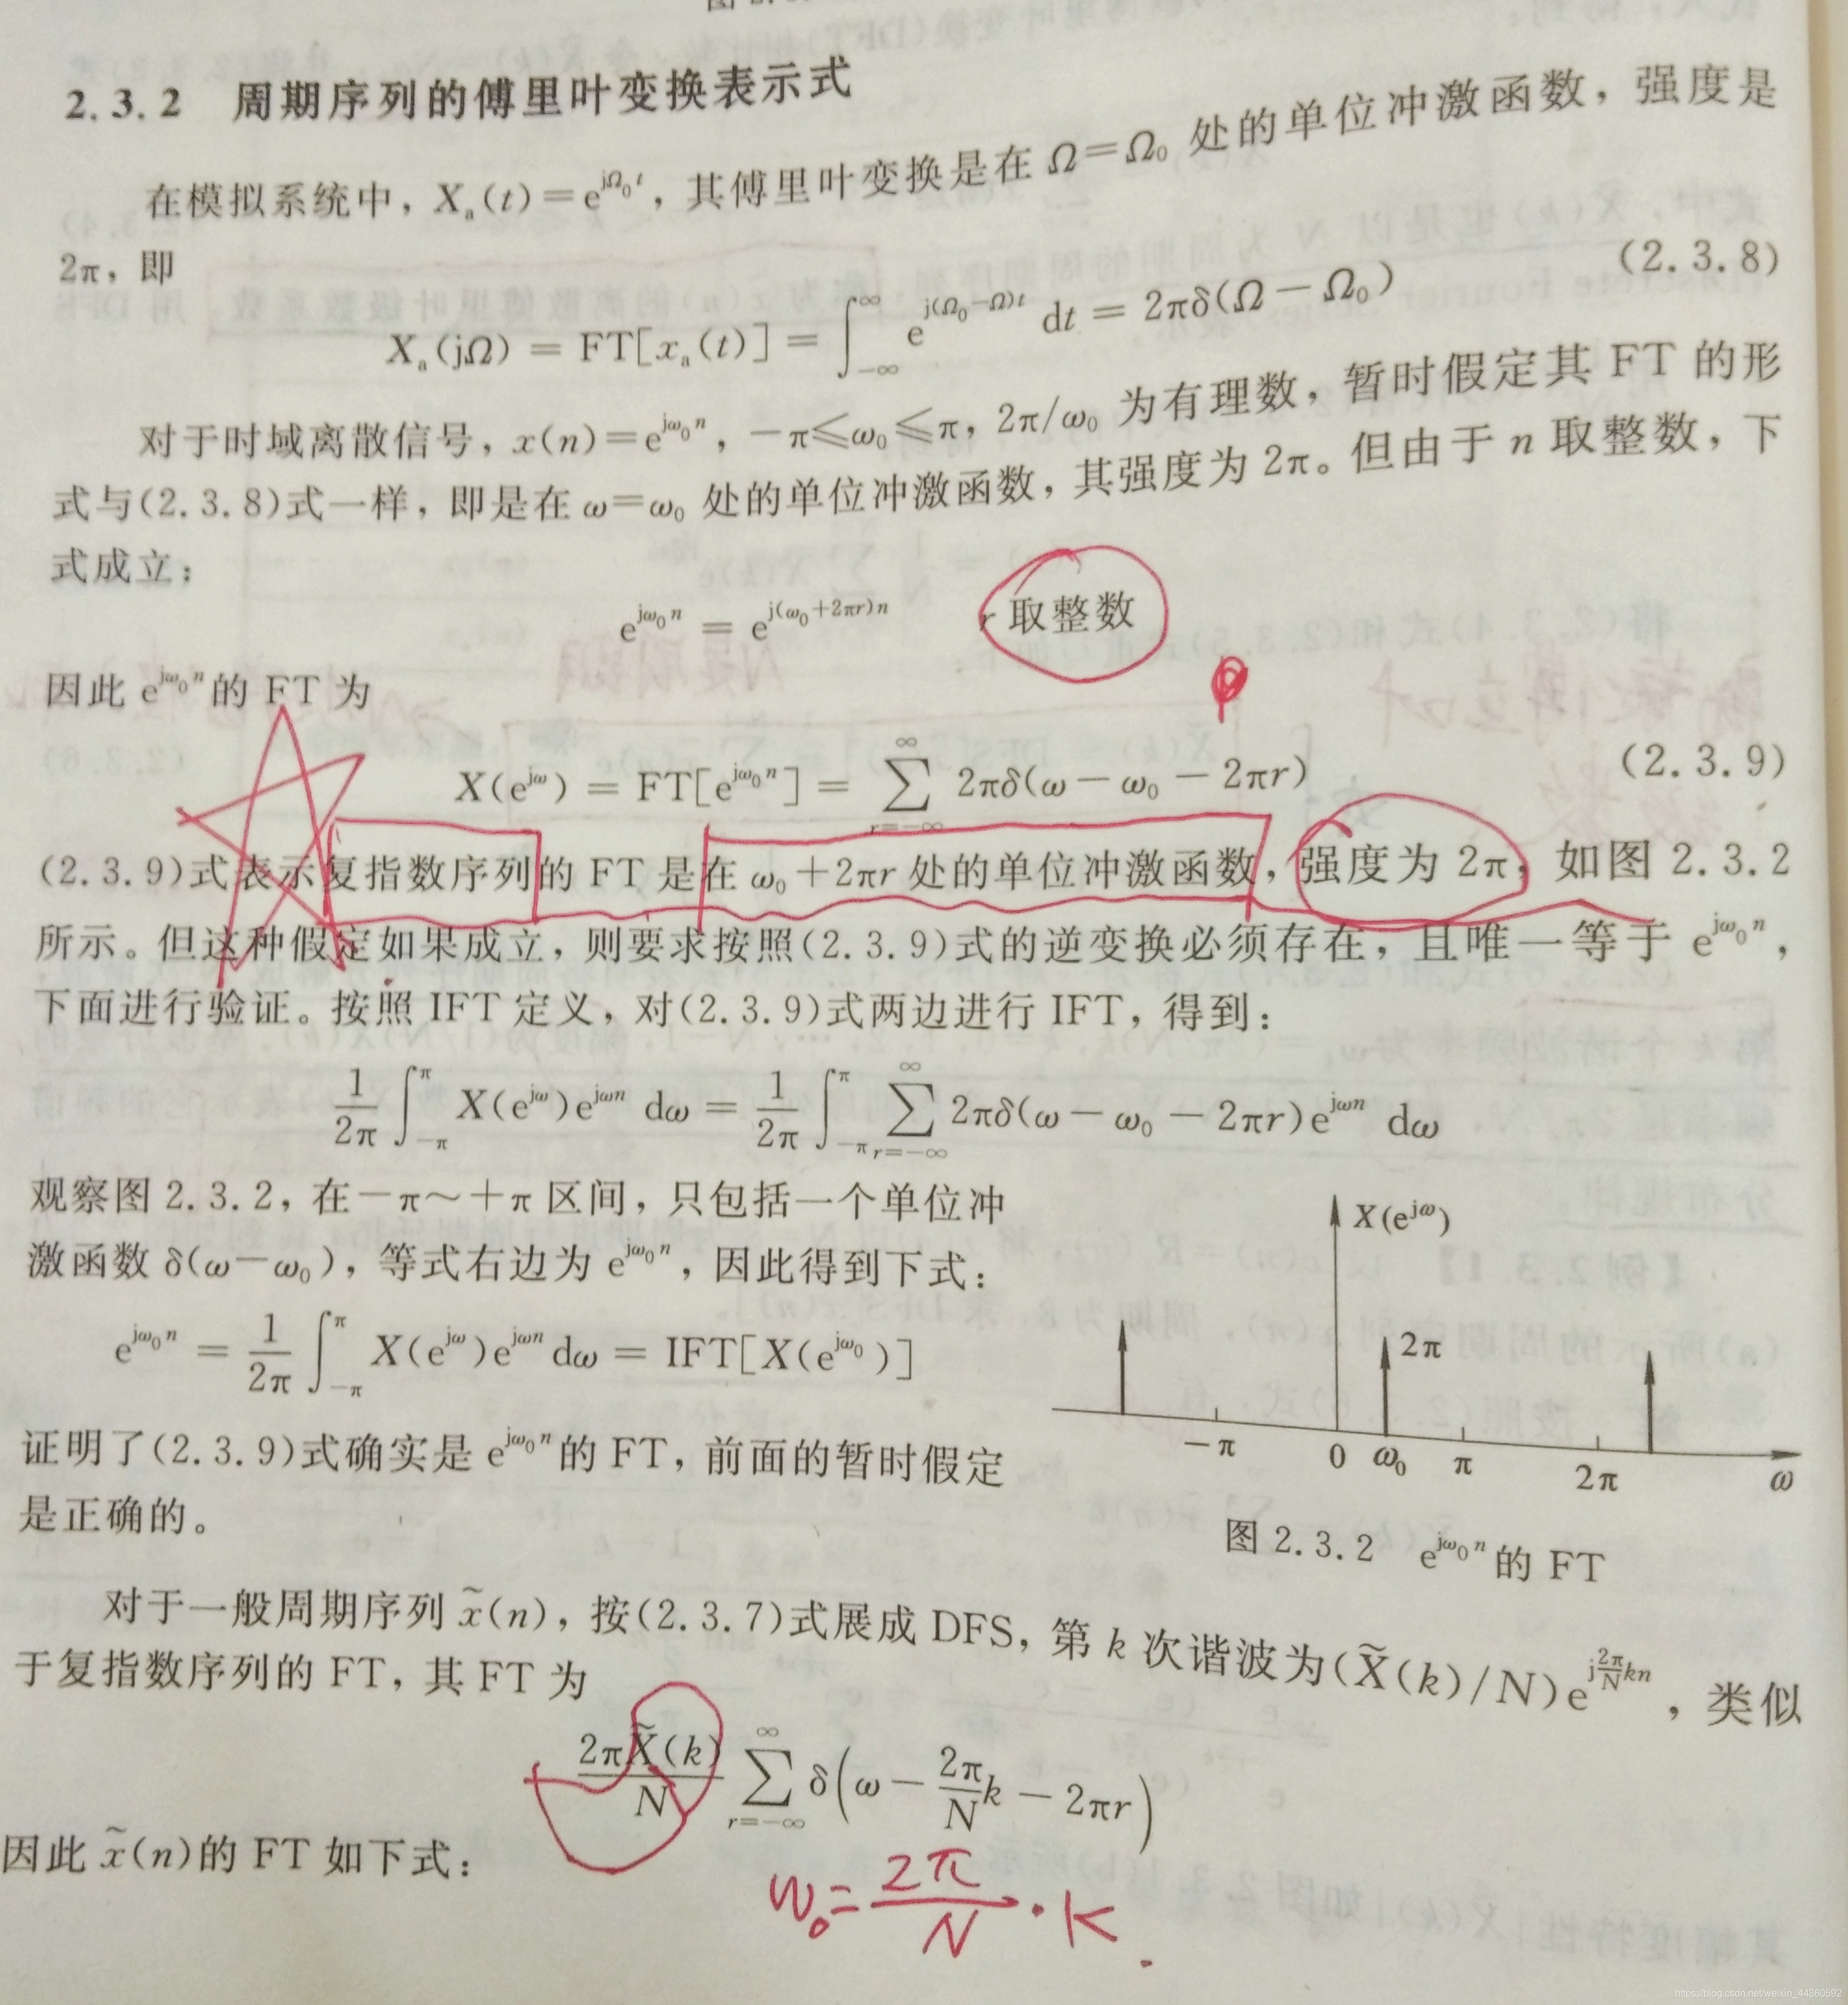 2.3.2 周期序列的傅里叶变换表示式
在模拟系统中，Xₐ(t)=e^{jΩ₀t}，其傅里叶变换是在 Ω=Ω₀ 处的单位冲激函数，强度是
2π，即
Xₐ(jΩ) = FT[xₐ(t)] = ∫_{-∞}^{∞} e^{j(Ω₀-Ω)t} dt = 2πδ(Ω-Ω₀) (2.3.8)
对于时域离散信号，x(n)=e^{jω₀n}，-π≤ω₀≤π，2π/ω₀ 为有理数，暂时假定其 FT 的形
式与(2.3.8)式一样，即是在 ω=ω₀ 处的单位冲激函数，其强度为 2π。但由于 n 取整数，下
式成立：
e^{jω₀n} = e^{j(ω₀+2πr)n} r 取整数
因此 e^{jω₀n} 的 FT 为
X(e^{jω}) = FT[e^{jω₀n}] = ∑_{r=-∞}^{∞} 2πδ(ω-ω₀-2πr) (2.3.9)
(2.3.9)式表示复指数序列的 FT 是在 ω₀+2πr 处的单位冲激函数，强度为 2π，如图 2.3.2
所示。但这种假定如果成立，则要求按照(2.3.9)式的逆变换必须存在，且唯一等于 e^{jω₀n}，
下面进行验证。按照 IFT 定义，对(2.3.9)式两边进行 IFT，得到：
1/2π ∫_{-π}^{π} X(e^{jω})e^{jωn} dω = 1/2π ∫_{-π}^{π} ∑_{r=-∞}^{∞} 2πδ(ω-ω₀-2πr)e^{jωn} dω
观察图 2.3.2，在-π～+π 区间，只包括一个单位冲
激函数 δ(ω-ω₀)，等式右边为 e^{jω₀n}，因此得到下式：
e^{jω₀n} = 1/2π ∫_{-π}^{π} X(e^{jω})e^{jωn}dω = IFT[X(e^{jω₀})]
证明了(2.3.9)式确实是 e^{jω₀n} 的 FT，前面的暂时假定
是正确的。
X(e^{jω})
2π
-π 0 ω₀ π 2π ω
图 2.3.2 e^{jω₀n} 的 FT
对于一般周期序列 x̃(n)，按(2.3.7)式展成 DFS，第 k 次谐波为(X̃(k)/N)e^{j(2π/N)kn}，类似
于复指数序列的 FT，其 FT 为
2πX̃(k)/N ∑_{r=-∞}^{∞} δ(ω-(2π/N)k-2πr)
因此 x̃(n)的 FT 如下式：
w₀=2π/N·k.
https://blog.csdn.net/weixin_44360592